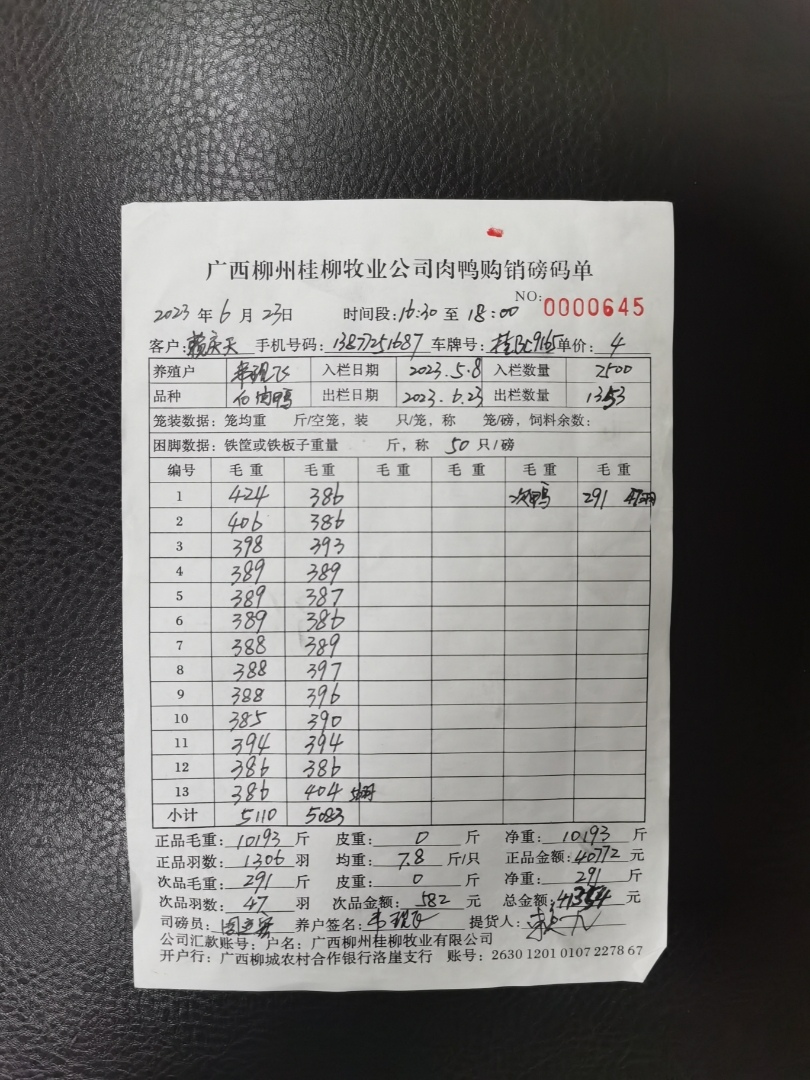 广西柳州桂柳牧业公司肉鸭购销磅码单
NO: 0000645
2023 年 6 月 23日 时间段: 16:30 至 18:00
客户: 赖庆天 手机号码: 13877251687 车牌号: 单价: 4
养殖户 韦现飞 入栏日期 2023.5.8 入栏数量 2500
品种 白肉鸭 出栏日期 2023.6.23 出栏数量 1353
笼装数据: 笼均重 斤/空笼, 装 只/笼, 称 笼/磅, 饲料余数:
困脚数据: 铁筐或铁板子重量 斤, 称 50 只/磅
编号 毛重 毛重 毛重 毛重 毛重 毛重
1 424 386 次鸭 291 47羽
2 406 386
3 398 393
4 389 389
5 389 387
6 389 386
7 388 389
8 388 397
9 388 396
10 385 390
11 394 394
12 386 386
13 386 404
小计 5110 5083
正品毛重: 10193 斤 皮重: 0 斤 净重: 10193 斤
正品羽数: 1306 羽 均重: 7.8 斤/只 正品金额: 40772 元
次品毛重: 291 斤 皮重: 0 斤 净重: 291 斤
次品羽数: 47 羽 次品金额: 582 元 总金额: 41354 元
司磅员: 养户签名: 韦现飞 提货人:
公司汇款账号: 户名: 广西柳州桂柳牧业有限公司
开户行: 广西柳城农村合作银行洛崖支行 账号: 2630 1201 0107 2278 67